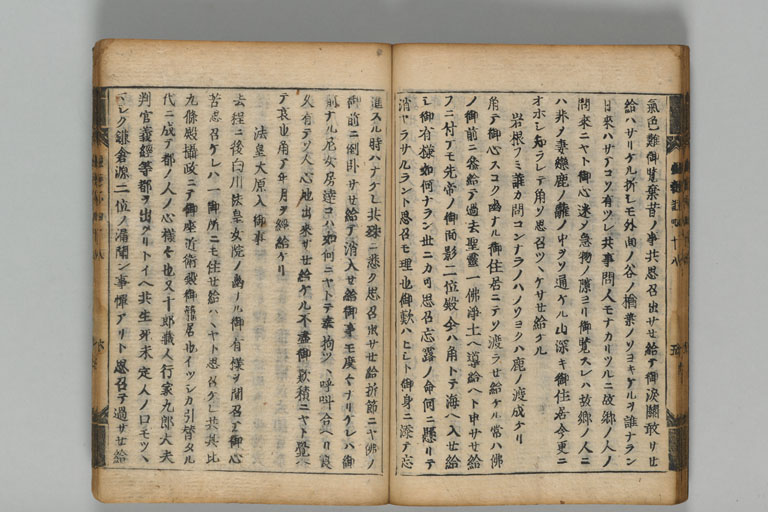 氣色難御覽棄昔ノ事共思召出サセ給テ御涙關敢サセ
給ハサリケル折シモ外面ノ谷ノ楢葉ノソヨキケルヲ誰ナラン
日來ハサテコソ有ツレ共事問人モナカリツルニ故郷ノ人ノ
問來ニヤト御心迷シ急物ノ隙ヨリ御覽スレハ故郷ノ人ニ
ハ非ノ妻戀鹿ノ籬ノ中ヲソ通ケル山深キ御住居今更ニ
オホシ知ラレテ角ソ思召ツヽケサセ給ケル
岩根フミ誰カ問コンナラノハノソヨクハ鹿ノ渡成ケリ
角テ御心スコク幽ナル御住居ニテソ渡ラセ給ケル常ハ佛
ノ御前ニ參給テ過去聖靈一佛淨土ヘ導給ヘト申サセ給
フニ付テモ先帝ノ御面影二位殿今ハ角トテ海ヘ入セ給
シ御有樣如何ナラン世ニカ可思召忘露ノ命何ニ懸リテ
消ヤラサルラント思召モ理也御歎ハヒシト御身ニ添テ忘
進スル時ハナケレ共殊ニ悲ク思召出サセ給折節ニヤ佛ノ
御前ニ倒臥サセ給テ消入セ給御事モ度々ナリケレハ御
前ナル尼女房達コハ如何ニヤトテ奉拘ツヽ呼叫合ヘリ良
久有テソ人心地出來サセ給ケル不盡御歎積ニヤト覺
テ哀也角テ年月ヲ經給ケリ
法皇大原入御事
去程ニ後白川法皇女院ノ幽ナル御有樣ヲ聞召テ御心
苦思召ケレハ一御所ニモ住セ給ハヽヤト思召ケレ共其比
九條殿攝政ニテ御座近衛殿御籠居也イツシカ引替タル
代ニ成テ都ノ人ノ心樣々也又十郎藏人行家九郎大夫
判官義經等都ヲ出タリトイヘ共生死未定人ノ口モツヽ
マシク鎌倉源二位ノ漏聞ン事憚アリト思召テ過サセ給